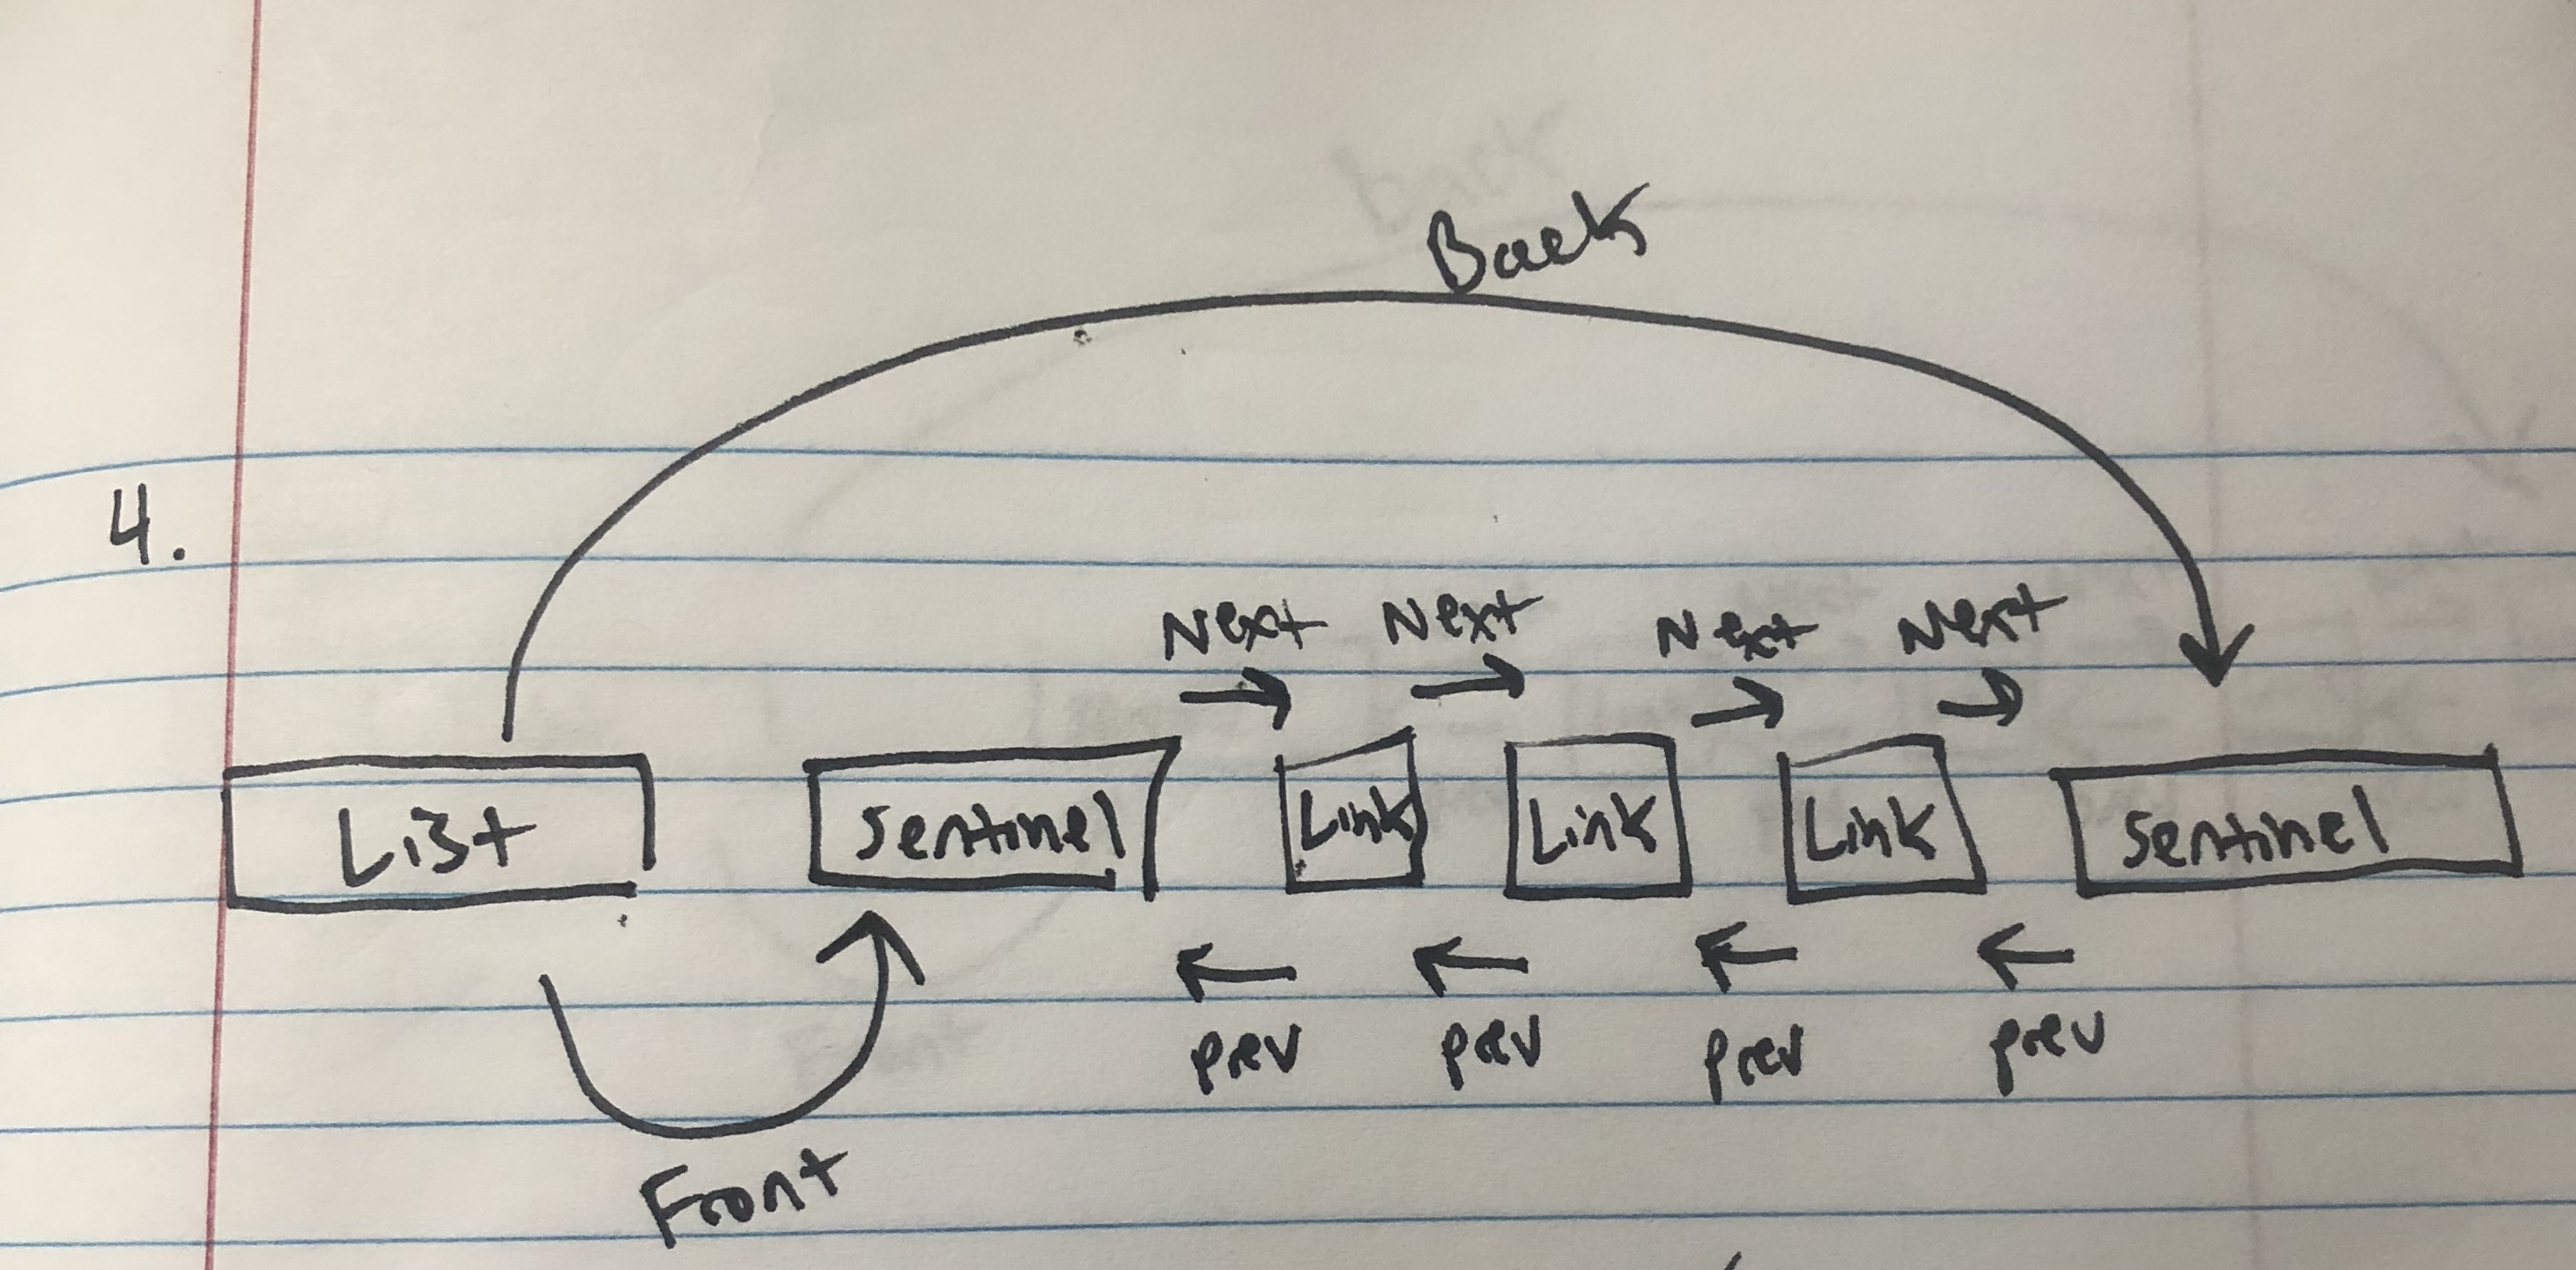 Back
4.
Next Next Next Next
List Sentinel Link Link Link Sentinel
prev prev prev prev
Front